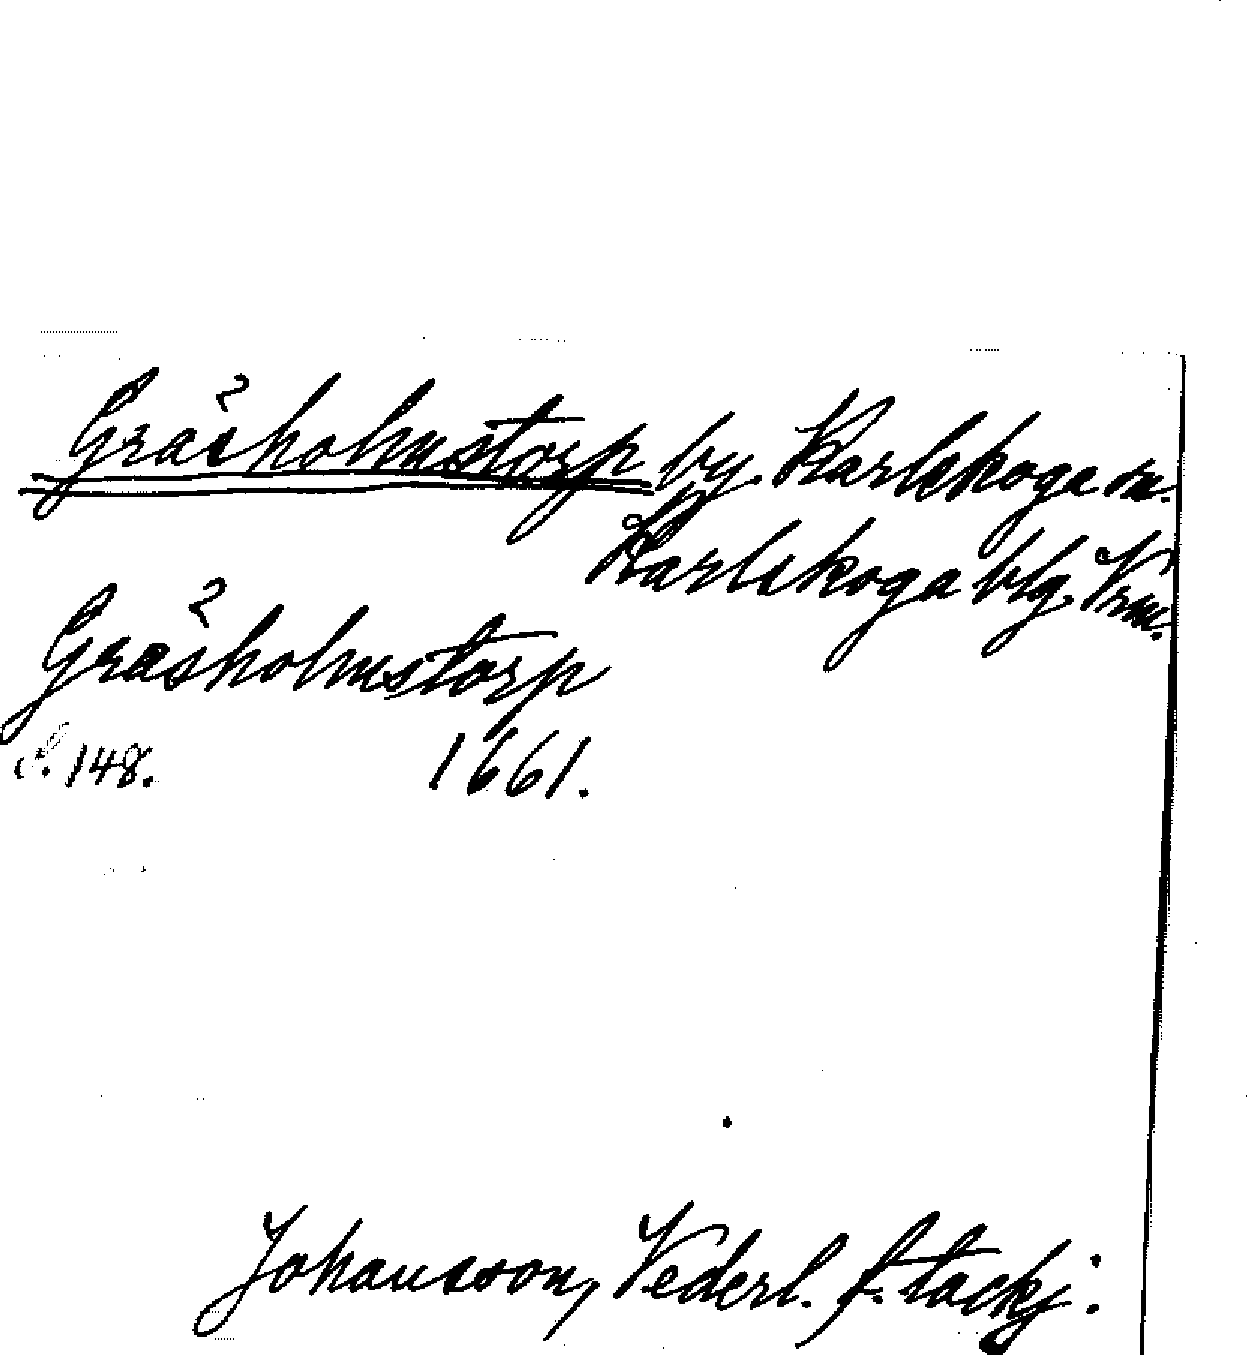 Gråsholmstorp by. Karlskoga sn.
Karlskoga blg. Vrm.
Gråsholmstorp
S. 148. 1661.
Johansson, Vederl. f. tackj: